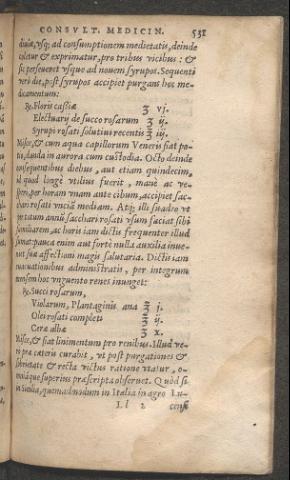 CONSVLT. MEDICIN. 531
diuiæ, vsq; ad consumptionem medietatis, deinde
coletur & exprimatur, pro tribus vicibus: &
sic perseueret vsque ad nouem syrupos. Sequenti
verò die, post syrupos accipiet purgans hoc me-
dicamentum:
℞. Floris cassiæ ʒ vj.
Electuarij de succo rosarum ʒ ij.
Syrupi rosati solutiui recentis ℥ iij.
Misce, & cum aqua capillorum Veneris fiat po-
tio, danda in aurora cum custodia. Octo deinde
consequentibus diebus, aut etiam quindecim,
id quod longè vtilius fuerit, manè ac ve-
speri, per horam vnam ante cibum, accipiet sac-
chari rosati vnciã mediam. Atq; illi suadeo vt
per totum annũ sacchari rosati vsum faciat sibi
familiarem, ac horis iam dictis frequenter illud
sumat: pauca enim aut fortè nulla auxilia inue-
niet suæ affectioni magis salutaria. Dictis iam
euacuationibus administratis, per integrum
mensem hoc vnguento renes inunget:
℞. Succi rosarum,
Violarum, Plantaginis ana ℥ j.
Olei rosati completi ℥ ij.
Ceræ albæ ʒ x.
Misce, & fiat linimentum pro renibus. Illud ve-
rò præ cæteris curabit, vt post purgationes &
sobrietate & recta victus ratione vtatur, o-
mniáque superius præscripta obseruet. Quòd si
in Sicilia, quemadmodum in Italia in agro Lu-
Ll 2 cense